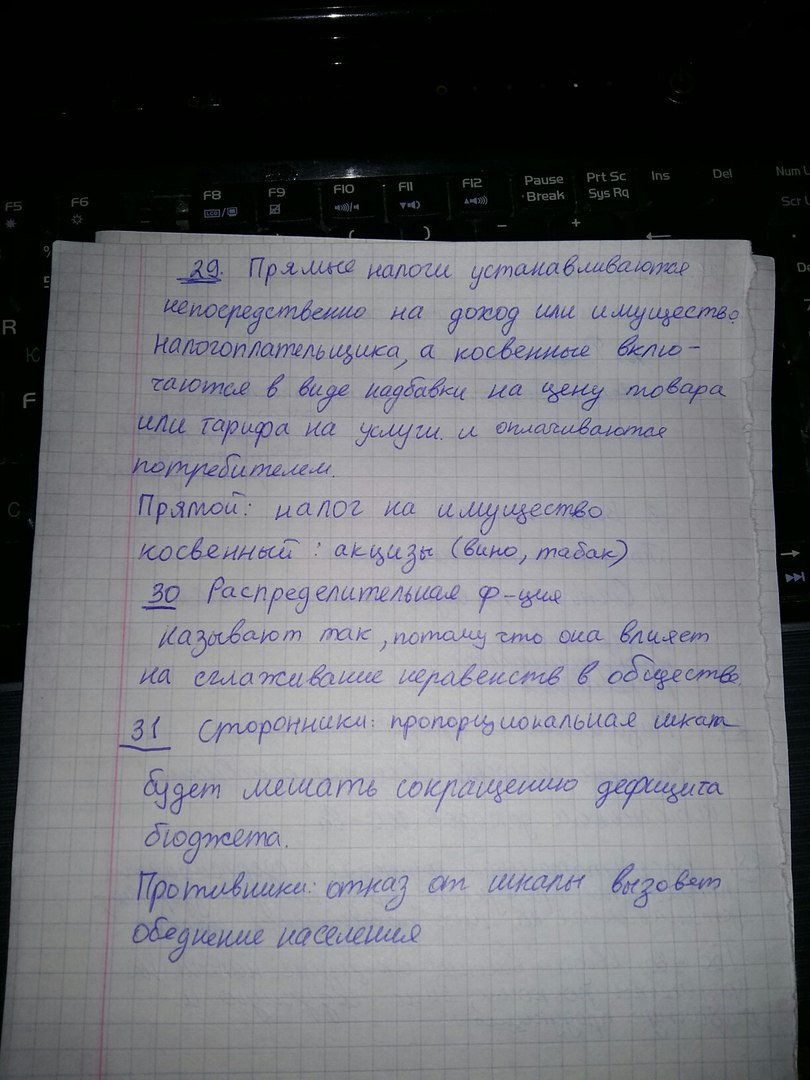 F5
F6
F8
F9
F10
F11
F12
Pause
Break
Prt Sc
Sys Rq
Ins
Del
Num L
Scr L
R
F
C
29. Прямые налоги устанавливаются
непосредственно на доход или имущество
налогоплательщика, а косвенные вклю-
чаются в виде надбавки на цену товара
или тарифа на услуги. и оплачиваются
потребителем.
Прямой: налог на имущество
косвенный: акцизы (вино, табак)
30 Распределительная ф-ция
Называют так, потому что она влияет
на сглаживание неравенств в обществе.
31 Сторонники: пропорциональная
будет мешать сокращению дефицита
бюджета.
Противники: отказ от шкалы вызовет
обеднение населения